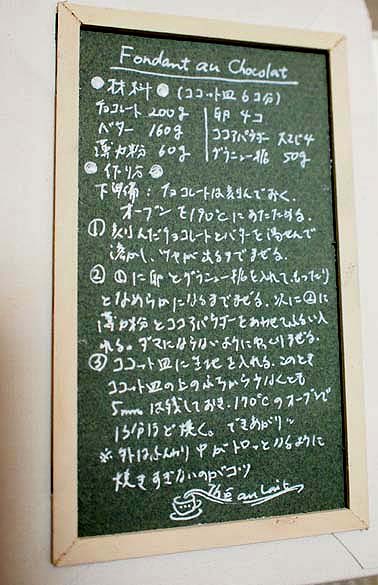 Fondant au Chocolat
●材料● (ココット皿 6コ分)
チョコレート 200g 卵 4コ
バター 160g ココアパウダー 大さじ4
薄力粉 60g グラニュー糖 50g
●作り方●
下準備：チョコレートは刻んでおく。
オーブンを170℃にあたためる。
① 刻んだチョコレートとバターを湯せんで
溶かし、ツヤが出るまでまぜる。
② ①に卵とグラニュー糖を入れて、もったり
となめらかになるまでまぜる。次に②に
薄力粉とココアパウダーをあわせてふるい入
れる。ダマにならないようにゆっくりまぜる。
③ ココット皿に生地を入れる。このとき
ココット皿の上のふちから少なくとも
5mmは残しておき、170℃のオーブンで
13分ほど焼く。できあがり〜
※外はふんわり中がトロッとなるように
焼きすぎないのがコツ
Thé au Lait